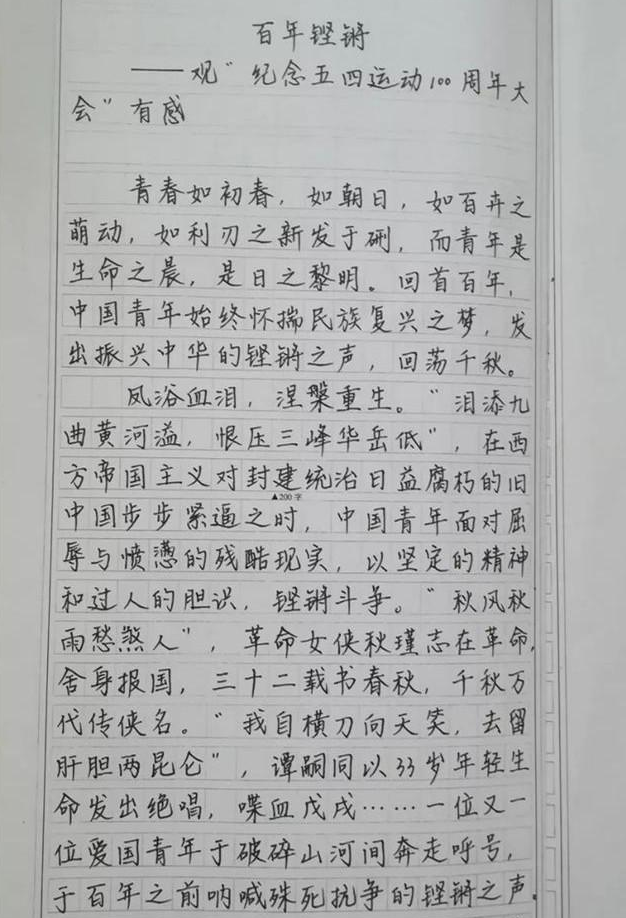 百年铿锵
——观“纪念五四运动100周年大
会”有感
青春如初春，如朝日，如百卉之
萌动，如利刃之新发于硎，而青年是
生命之晨，是日之黎明。回首百年，
中国青年始终怀揣民族复兴之梦，发
出振兴中华的铿锵之声，回荡千秋。
凤浴血泪，涅槃重生。“泪添九
曲黄河溢，恨压三峰华岳低”，在西
方帝国主义对封建统治日益腐朽的旧
▲200字
中国步步紧逼之时，中国青年面对屈
辱与愤懑的残酷现实，以坚定的精神
和过人的胆识，铿锵斗争。“秋风秋
雨愁煞人”，革命女侠秋瑾志在革命，
舍身报国，三十二载书春秋，千秋万
代传侠名。“我自横刀向天笑，去留
肝胆两昆仑”，谭嗣同以33岁年轻生
命发出绝唱，喋血戊戌……一位又一
位爱国青年于破碎山河间奔走呼号，
于百年之前呐喊殊死抗争的铿锵之声。